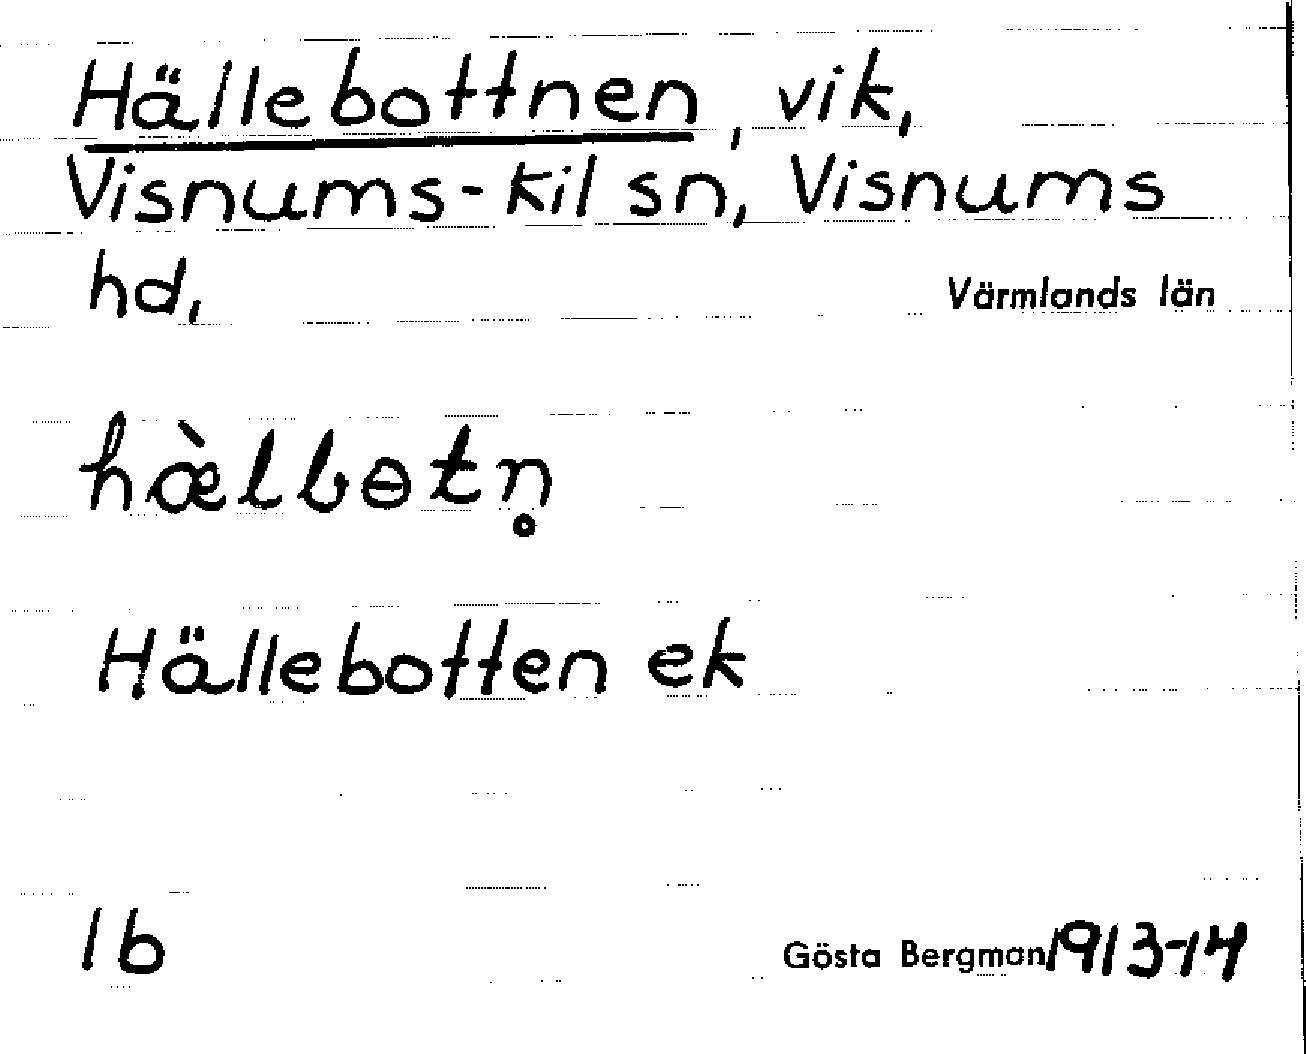 Hällebottnen, vik,
Visnums-Kil sn, Visnums
hd,
Värmlands län
hæ̀lbɵtn̥
Hällebotten ek
1b
Gösta Bergman 1913-14